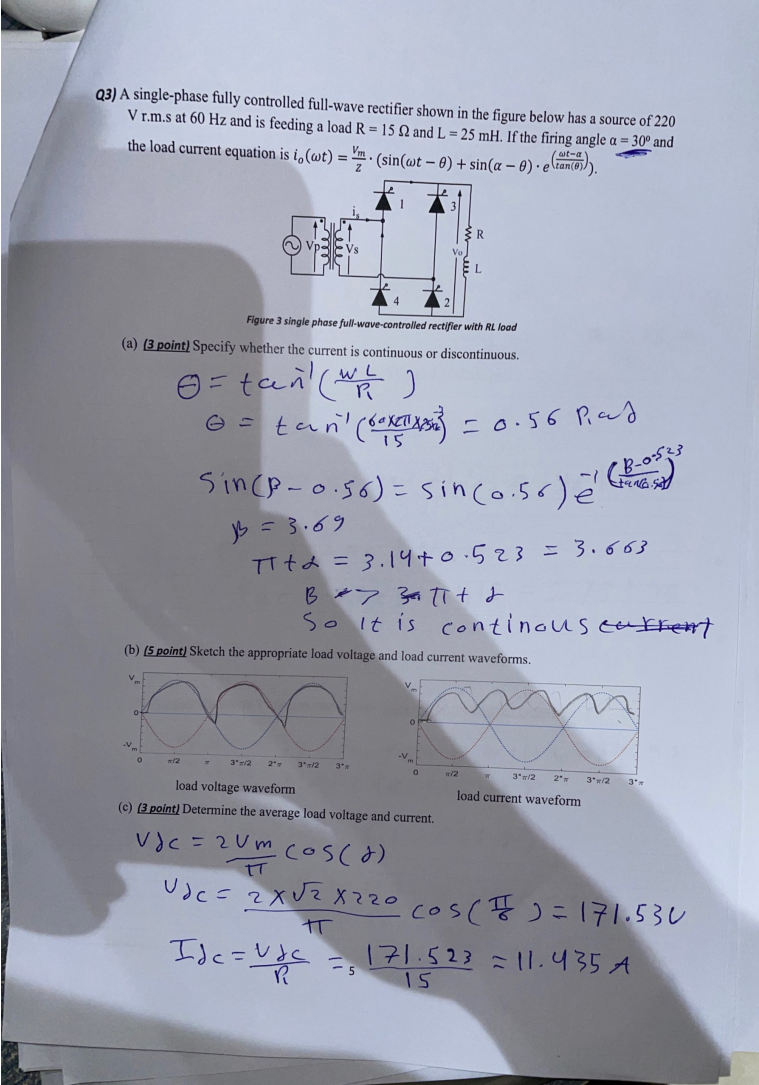 Q3) A single-phase fully controlled full-wave rectifier shown in the figure below has a source of 220
V r.m.s at 60 Hz and is feeding a load R = 15 Ω and L = 25 mH. If the firing angle α = 30º and
the load current equation is i_o(ωt) = V_m/Z · (sin(ωt − θ) + sin(α − θ) · e^(−(ωt−α)/tan(θ))).
1
3
i_s
Vp
Vs
Vo
R
L
4
2
Figure 3 single phase full-wave-controlled rectifier with RL load
(a) (3 point) Specify whether the current is continuous or discontinuous.
θ = tan⁻¹(wL/R)
θ = tan⁻¹(60×2π×25×10⁻³/15) = 0.56 Rad
sin(β − 0.56) = sin(0.56) e⁻¹ (β−0.523/tan(0.56))
β = 3.69
π+α = 3.14+0.523 = 3.663
β > π+α
So It is continous current
(b) (5 point) Sketch the appropriate load voltage and load current waveforms.
V_m
0
-V_m
0 π/2 π 3*π/2 2*π 3*π/2 3*π
load voltage waveform
V_m
0
-V_m
0 π/2 π 3*π/2 2*π 3*π/2 3*π
load current waveform
(c) (3 point) Determine the average load voltage and current.
Vdc = 2Vm/π cos(α)
Vdc = 2×√2×220/π cos(π/6) = 171.53V
Idc = Vdc/R = 171.523/15 = 11.435 A
5